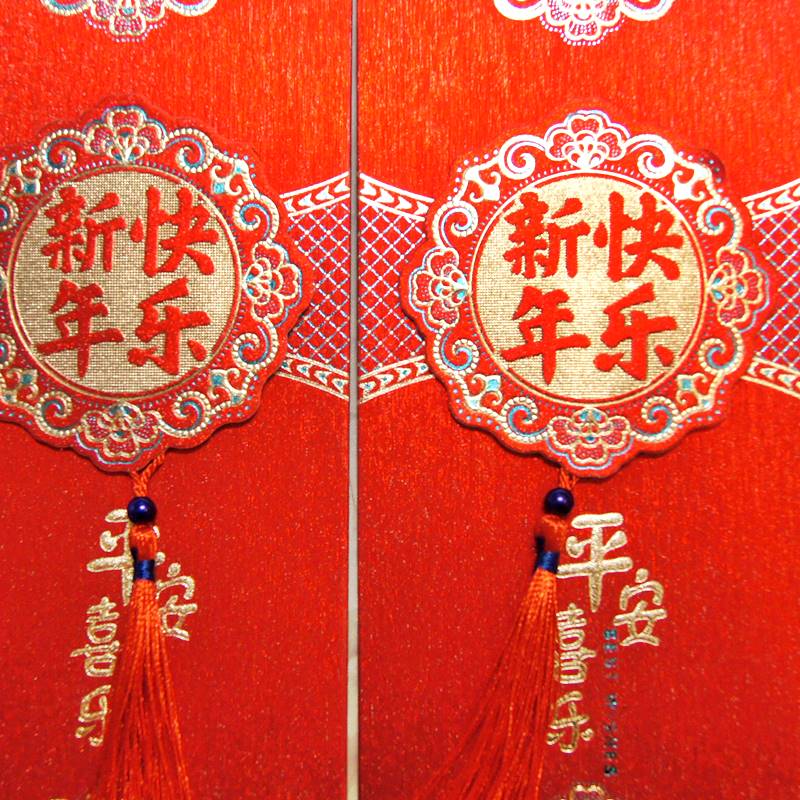 新快
年乐
平安
喜乐
新快
年乐
平安
喜乐